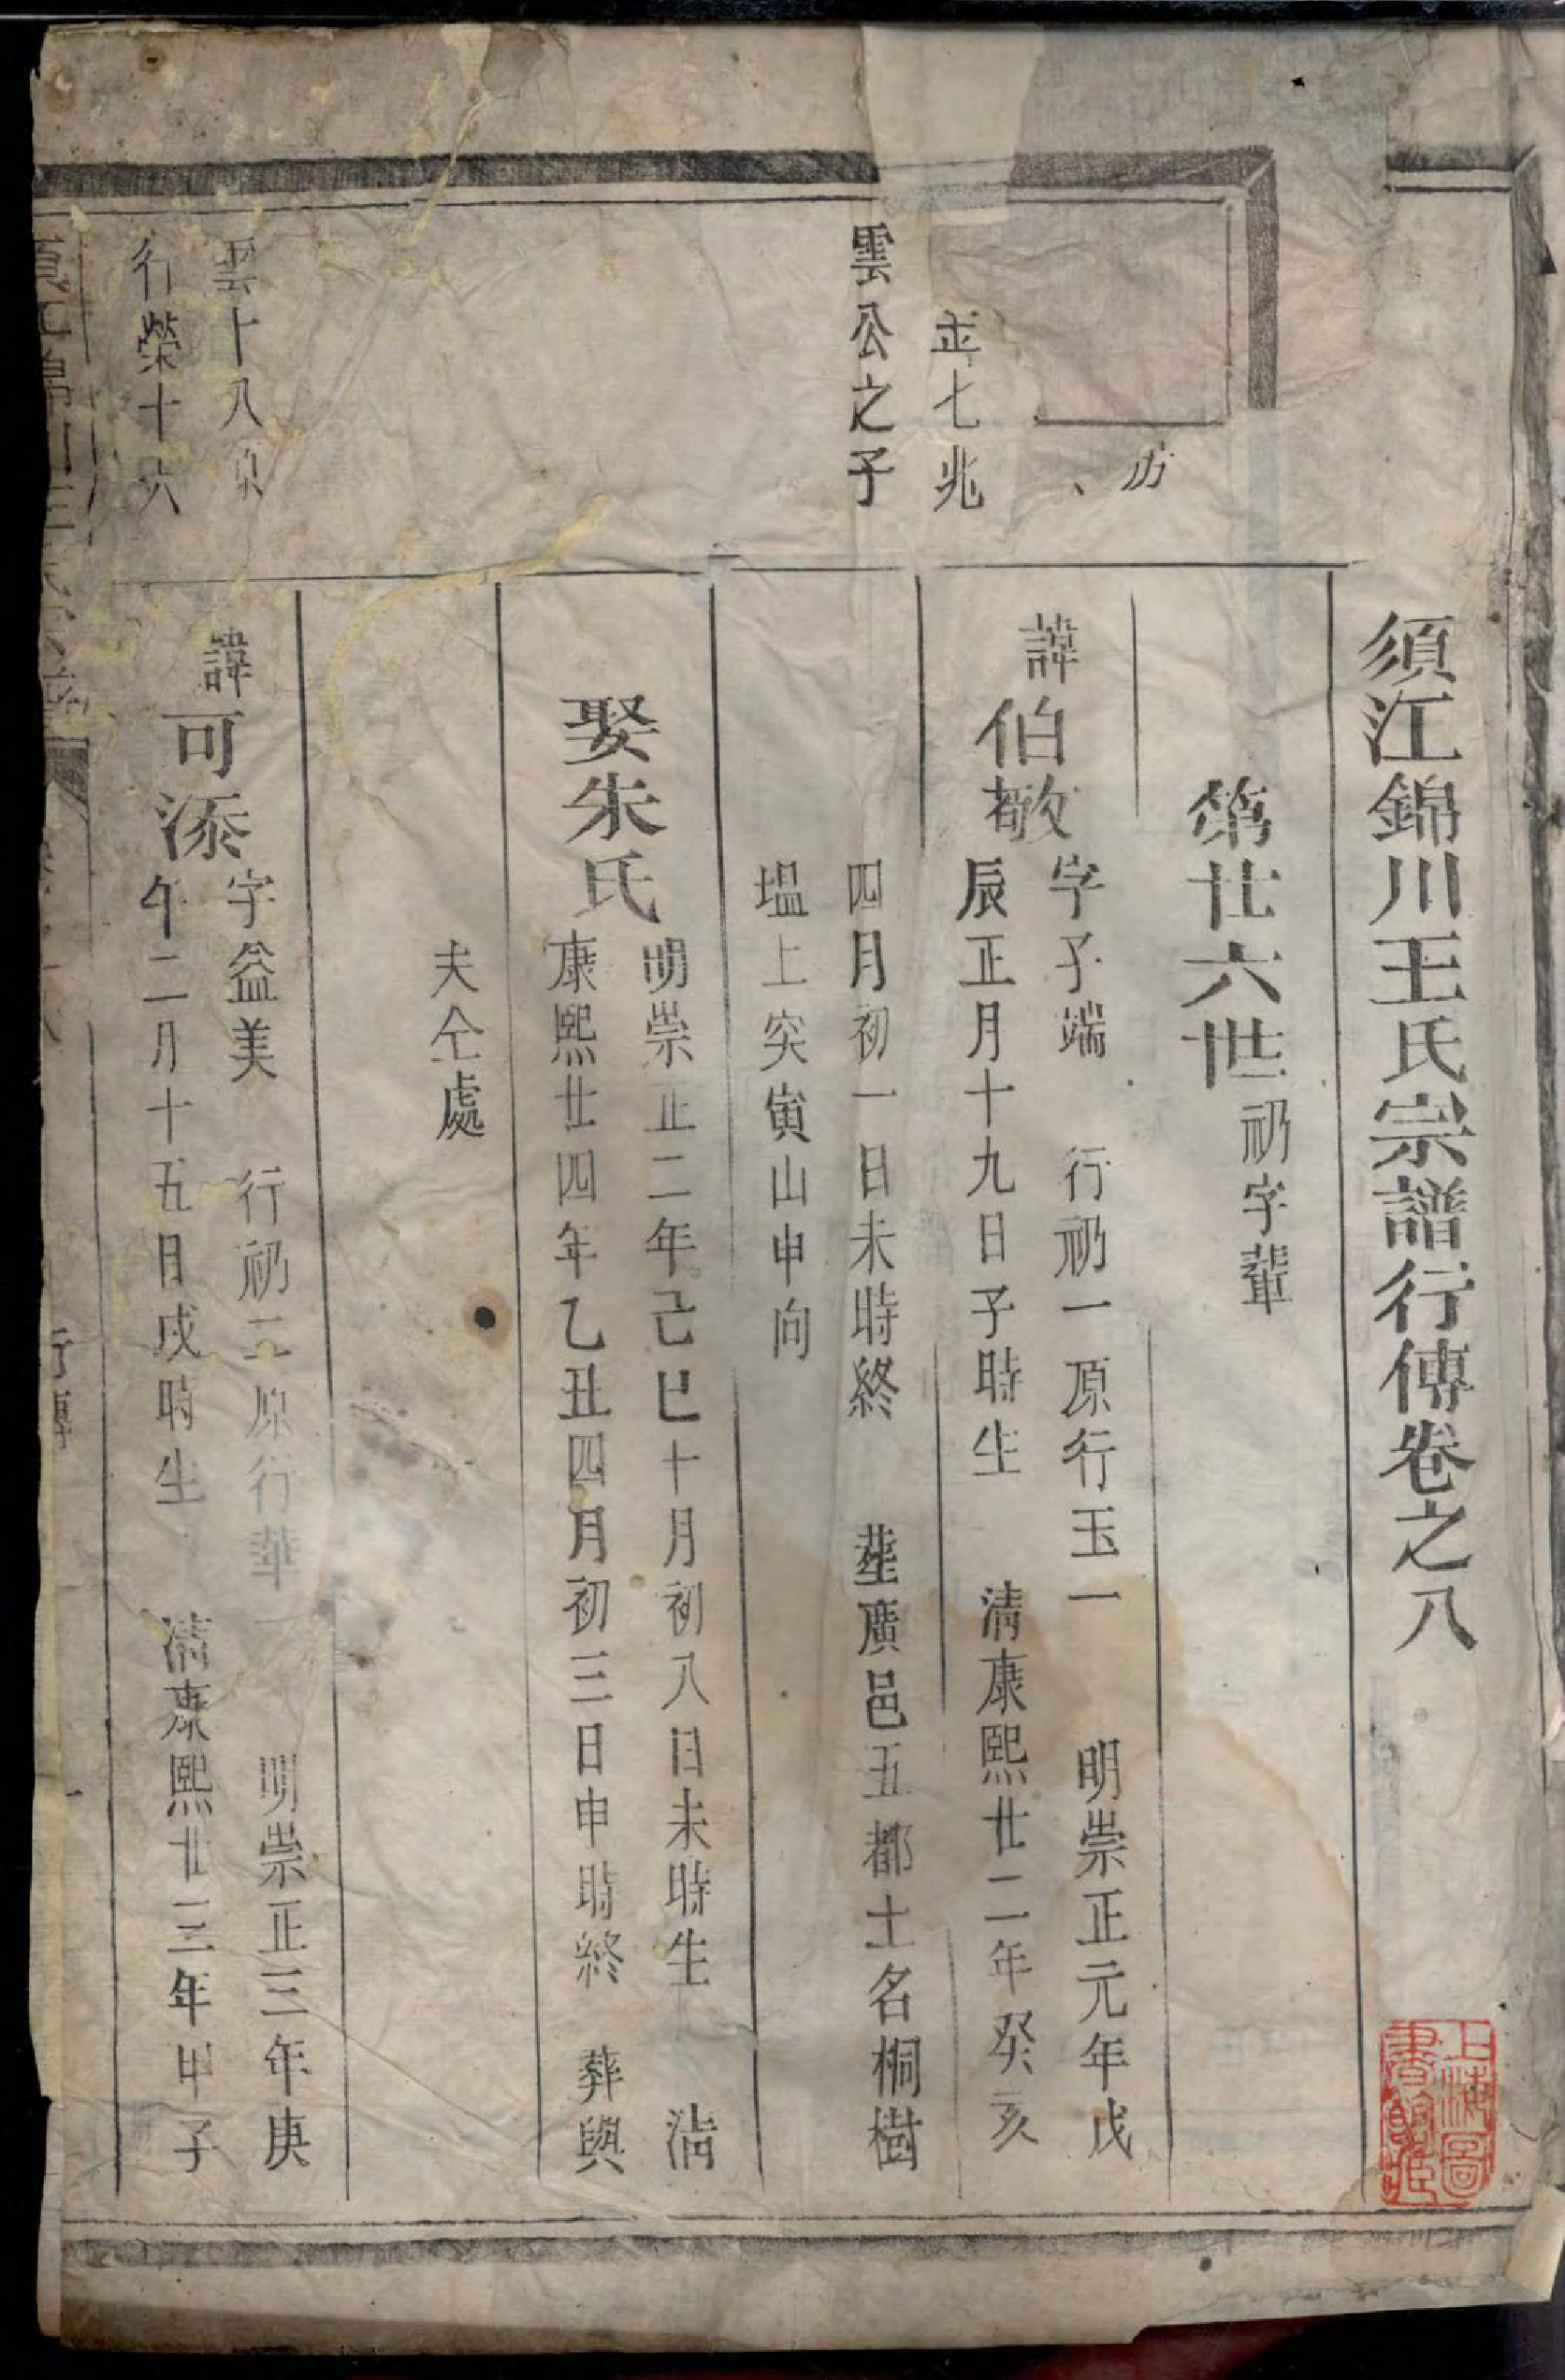 須江錦川王氏宗譜行傳卷之八
第廿六世礽字輩
七兆
雲公之子
諱伯敬
字子端 行礽一原行玉一 明崇正元年戊
辰正月十九日子時生 清康熙廿二年癸亥
四月初一日未時終 塟廣邑五都土名桐樹
塭上突寅山申向
娶朱氏
明崇正二年己巳十月初八日未時生 清
康熙廿四年乙丑四月初三日申時終 葬與
夫仝處
雲十八
行榮十六
諱可添
字益美 行礽二原行華一 明崇正三年庚
午二月十五日戌時生 清康熙廿三年甲子
行傳
上海圖書館藏